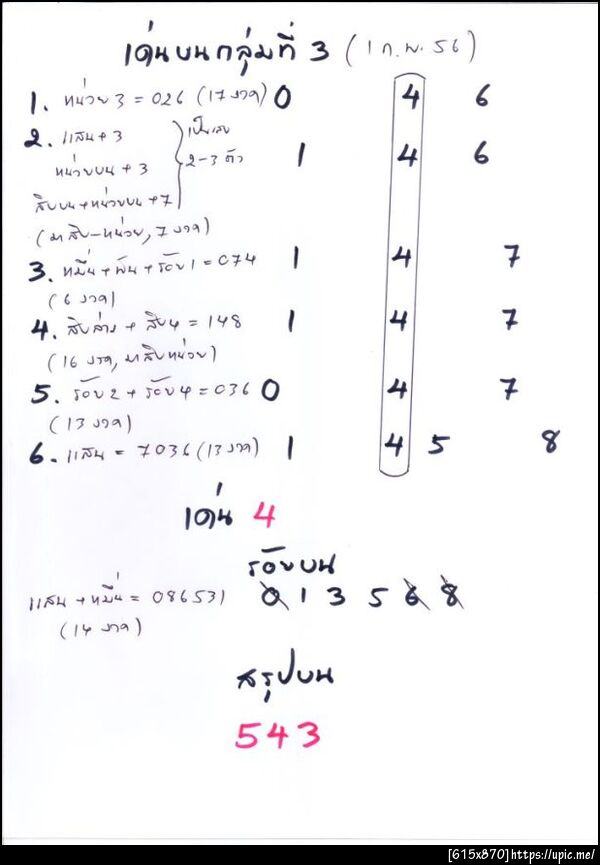 เด่นบนกลุ่มที่ 3 (1 ก.พ. 56)
1. หน่วย 3 = 026 (17 งวด) 0 4 6
2. แสน + 3 เป็นเลข
หน่วยบน + 3 2-3 ตัว 1 4 6
สิบบน + หน่วยบน + 7
(มาสิบ-หน่วย, 7 งวด)
3. หมื่น + พัน + ร้อย 1 = 074 1 4 7
(6 งวด)
4. สิบล่าง + สิบ 4 = 148 1 4 7
(16 งวด, มาสิบหน่วย)
5. ร้อย 2 + ร้อย 4 = 036 0 4 7
(13 งวด)
6. แสน = 7036 (13 งวด) 1 4 5 8
เด่น 4
ร้อยบน
แสน + หมื่น = 086531 0 1 3 5 6 8
(14 งวด)
สรุปบน
543
[615x870]https://upic.me/